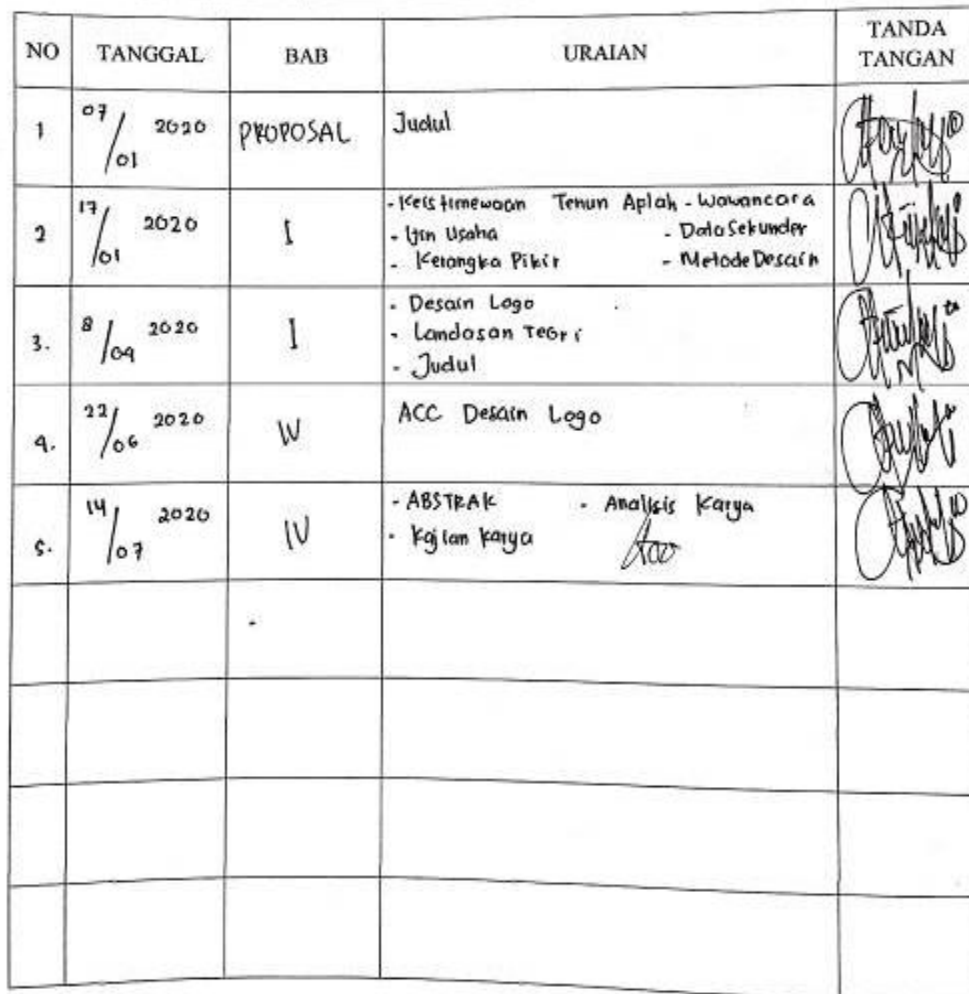 NO TANGGAL BAB URAIAN TANDA TANGAN
1 07/01 2020 PROPOSAL Judul
2 17/01 2020 I - Keistimewaan Tenun Aplah - Wawancara
- Ijin Usaha - Data Sekunder
- Kerangka Pikir - Metode Desain
3. 8/04 2020 I - Desain Logo
- Landasan Teori
- Judul
4. 22/06 2020 IV ACC Desain Logo
5. 14/07 2020 IV - ABSTRAK - Analisis Karya
- Kajian Karya